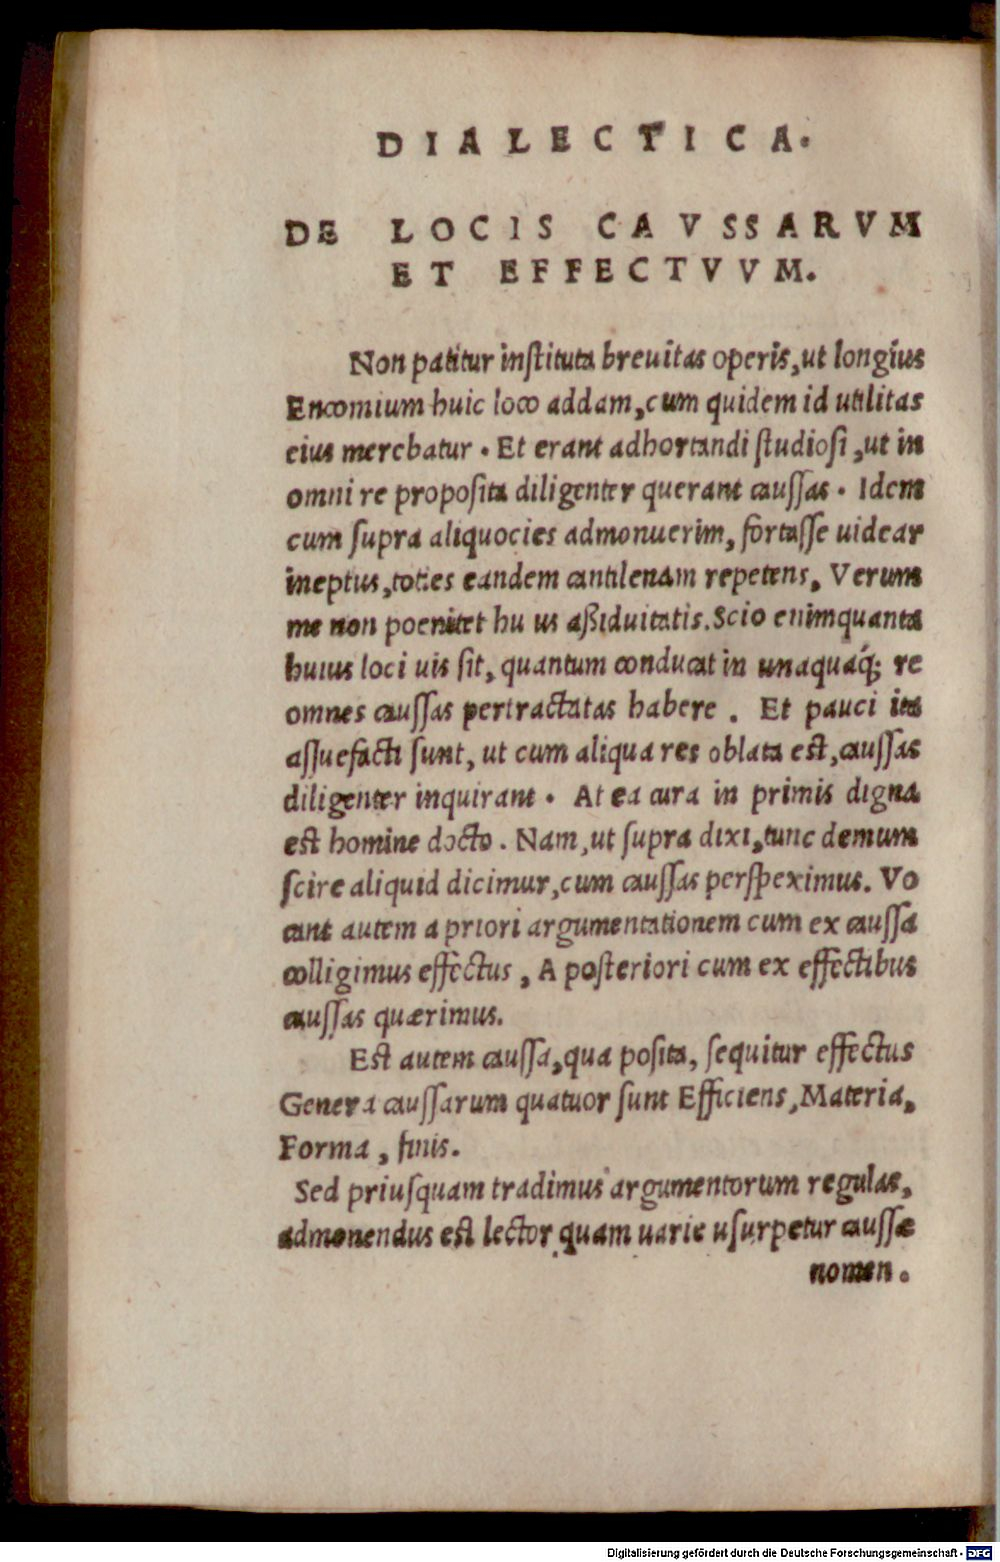 DIALECTICA.
DE LOCIS CAVSSARVM
ET EFFECTVVM.
Non patitur inſtituta breuitas operis, ut longius
Encomium huic loco addam, cum quidem id utilitas
eius merebatur. Et erant adhortandi ſtudioſi, ut in
omni re propoſita diligenter querant cauſſas. Idem
cum ſupra aliquocies admonuerim, fortaſſe uidear
ineptus, toties eandem cantilenam repetens, Verum
me non poenitet hu us aßiduitatis. Scio enim quanta
huius loci uis ſit, quantum conducat in unaquáq; re
omnes cauſſas pertractatas habere. Et pauci ita
aſſuefacti ſunt, ut cum aliqua res oblata eſt, cauſſas
diligenter inquirant. At ea cura in primis digna
eſt homine docto. Nam, ut ſupra dixi, tunc demum
ſcire aliquid dicimur, cum cauſſas perſpeximus. Vo
cant autem a priori argumentationem cum ex cauſſa
colligimus effectus, A poſteriori cum ex effectibus
cauſſas quærimus.
Eſt autem cauſſa, qua poſita, ſequitur effectus
Genera cauſſarum quatuor ſunt Efficiens, Materia,
Forma, finis.
Sed priuſquam tradimus argumentorum regulas,
admonendus eſt lector quam uarie uſurpetur cauſſæ
nomen.
Digitalisierung gefördert durch die Deutsche Forschungsgemeinschaft - DFG